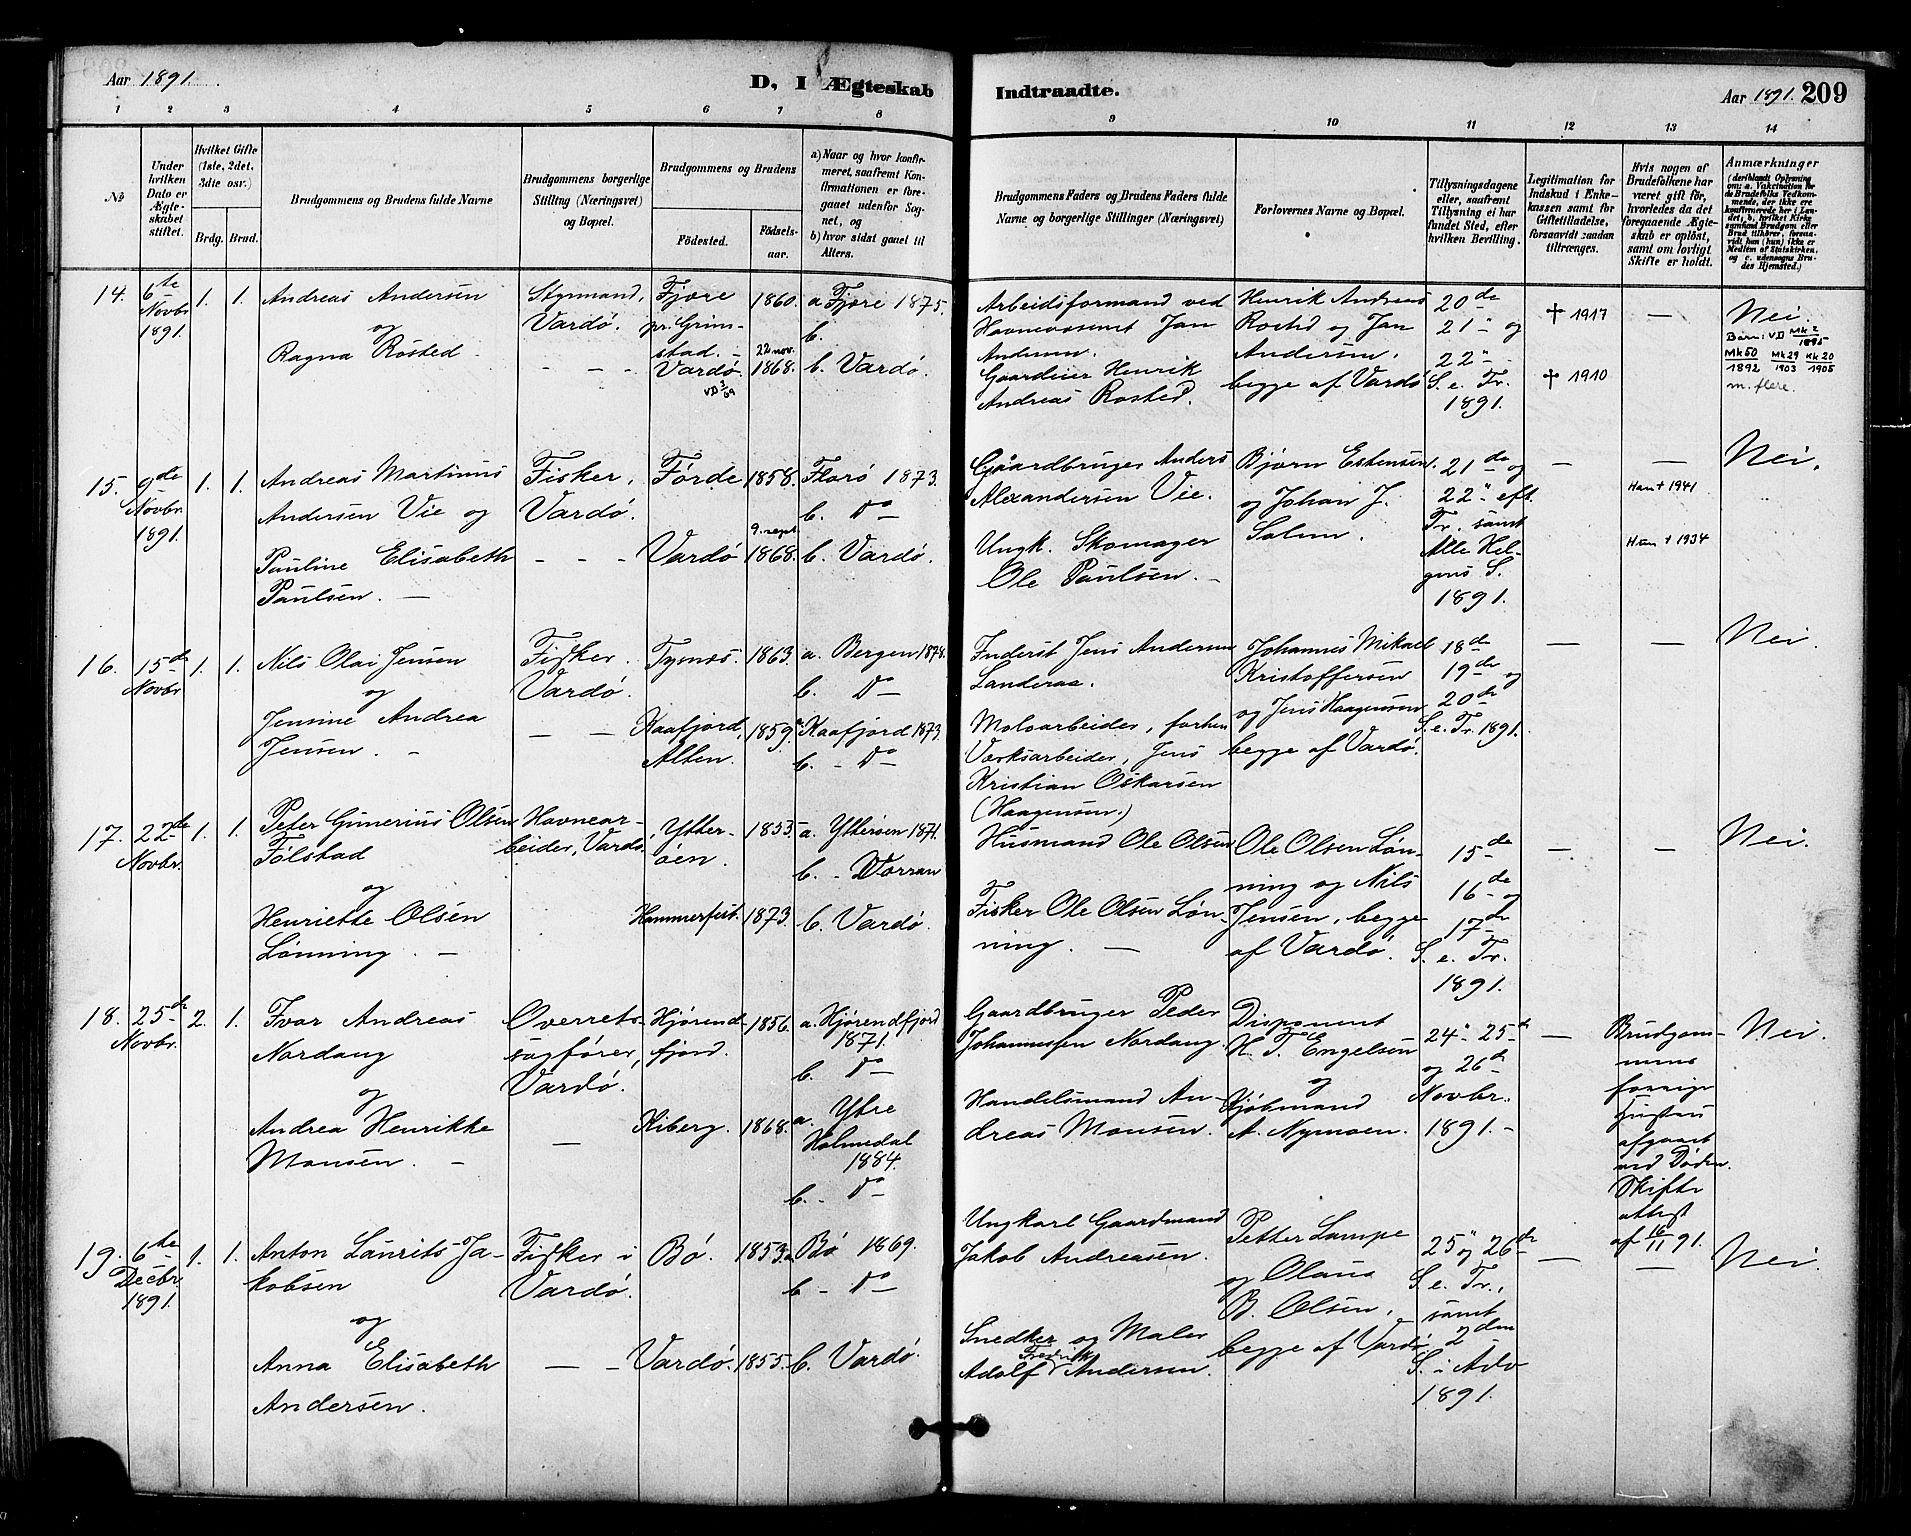 Aar 1891.
D, I Ægteskab
Indtraadte.
Aar 1891. 209
1 2 3 4 5 6 7 8 9 10 11 12 13 14
No
Under hvilken Dato er Ægteskabet stiftet.
Hvilket Gifte (1ste, 2det, 3die osv.)
Brdg. Brud.
Brudgommens og Brudens fulde Navne
Brudgommens borgerlige Stilling (Næringsvei) og Bopæl.
Brudgommens og Brudens
Fødested.
Fødselsaar.
a) Naar og hvor konfirmeret, saafremt Konfirmationen er foregaaet udenfor Sognet, og
b) hvor sidst gaaet til Alters.
Brudgommens Faders og Brudens Faders fulde Navne og borgerlige Stillinger (Næringsvei)
Forlovernes Navne og Bopæl.
Tillysningsdagene eller, saafremt Tillysning ei har fundet Sted, efter hvilken Bevilling.
Legitimation for Indskud i Enkekassen samt for Giftetilladelse, forsaavidt saadan tiltrænges.
Hvis nogen af Brudefolkene har været gift før, hvorledes da det foregaaende Ægteskab er opløst, samt om lovligt Skifte er holdt.
Anmærkninger (deriblandt Oplysning om: a. Vakcination for de Brudefolks Vedkommende, der ikke ere konfirmerede her i Landet; b. hvilket Kirkesamfund Brudgom eller Brud tilhører, forsaavidt han (hun) ikke er Medlem af Statskirken, og c. udensogns Brudes Hjemsted.)
14. 6te Novbr 1891. 1. 1.
Andreas Andersen
og
Ragna Rosted
Styrmand, Vardø.
Fjære pr. Grimstad. 1860. a. Fjære 1875.
b.
Vardø. VD 3/69 22 nov. 1868. b. Vardø.
Arbeidsformand ved Havnevæsenet Jan Andersen.
Gaardeier Henrik Andreas Rosted.
Henrik Andreas Rosted og Jan Andersen, begge af Vardø
20de 21" og 22" S. e. Tr. 1891.
† 1917
† 1910
—
Nei.
Barn: VD Mk 2 1895
Mk 50 1892 Mk 29 1903 Kk 20 1905
m. flere.
15. 9de Novbr 1891. 1. 1.
Andreas Martinus
Andersen Vie og
Pauline Elisabeth
Paulsen.
Fisker, Vardø.
Førde 1858. Florø 1873.
b. Do
Vardø 9. sept 1868. b. Vardø.
Gaardbruger Anders
Alexandersen Vie.
Ungk. Skomager
Ole Paulsen.
Bjørn Estensen og Johan J. Salem.
21de og 22" eft. Tr. samt Alle Helgens S. 1891.
—
—
Han † 1941
Hun † 1934
Nei.
16. 15de Novbr 1. 1.
Nils Olai Jensen
og
Jensine Andrea
Jensen.
Fisker. Vardø.
Tysnes. 1863. a. Bergen 1878.
b. Do
Kaafjord, Alten. 1859. a. Kaafjord 1873.
b. Do
Inderst Jens Andersen
Landeraa.
Moloarbeider, forhen
Værksarbeider, Jens
Kristian Oskarsen
(Haagensen.)
Johannes Mikael Kristoffersen og Jens Haagensen begge af Vardø.
18de 19de og 20de S. e. Tr. 1891.
—
—
Nei.
17. 22de Novbr. 1. 1.
Peter Gunerius Olsen
Følstad
og
Henriette Olsen
Lønning
Havnearbeider, Vardø
Ytterøen. 1853. a. Ytterøen 1871.
b. Vorran
Hammerfest. 1873. b. Vardø.
Husmand Ole Olsen
Fisker Ole Olsen Lønning.
Ole Olsen Lønning og Nils Jensen, begge af Vardø.
15de 16de og 17de S. e. Tr. 1891.
—
—
Nei.
18. 25de Novbr. 2. 1.
Ivar Andreas
Nordang
og
Andrea Henrikke
Monsen.
Overretssagfører, Vardø.
Hjørendfjord. 1856. a. Hjørendfjord 1871.
b. Do
Kiberg. 1868. a. Ytre Holmedal 1884.
b. Do
Gaardbruger Peder
Johannesen Nordang.
Handelsmand Andreas Monsen.
Disponent H. T. Engelsen og Kjøbmand A. Nymoen.
24" 25de og 26de Novbr. 1891.
—
Brudgommens forrige Hustru afgaaet ved Døden. Skifteattest af 16/11 91.
Nei.
19. 6te Decbr. 1891. 1. 1.
Anton Laurits Jakobsen
og
Anna Elisabeth
Andersen.
Fisker i Vardø.
Bø. 1853. a. Bø 1869.
b. Do
Vardø. 1855. b. Vardø.
Ungkarl Gaardmand
Jakob Andreasen.
Snedker og Maler
Adolf Fredrik Andersen.
Petter Lampe og Olaus B. Olsen, begge af Vardø
25" og 26de S. e. Tr., samt 2den S. i Adv 1891.
—
—
Nei.